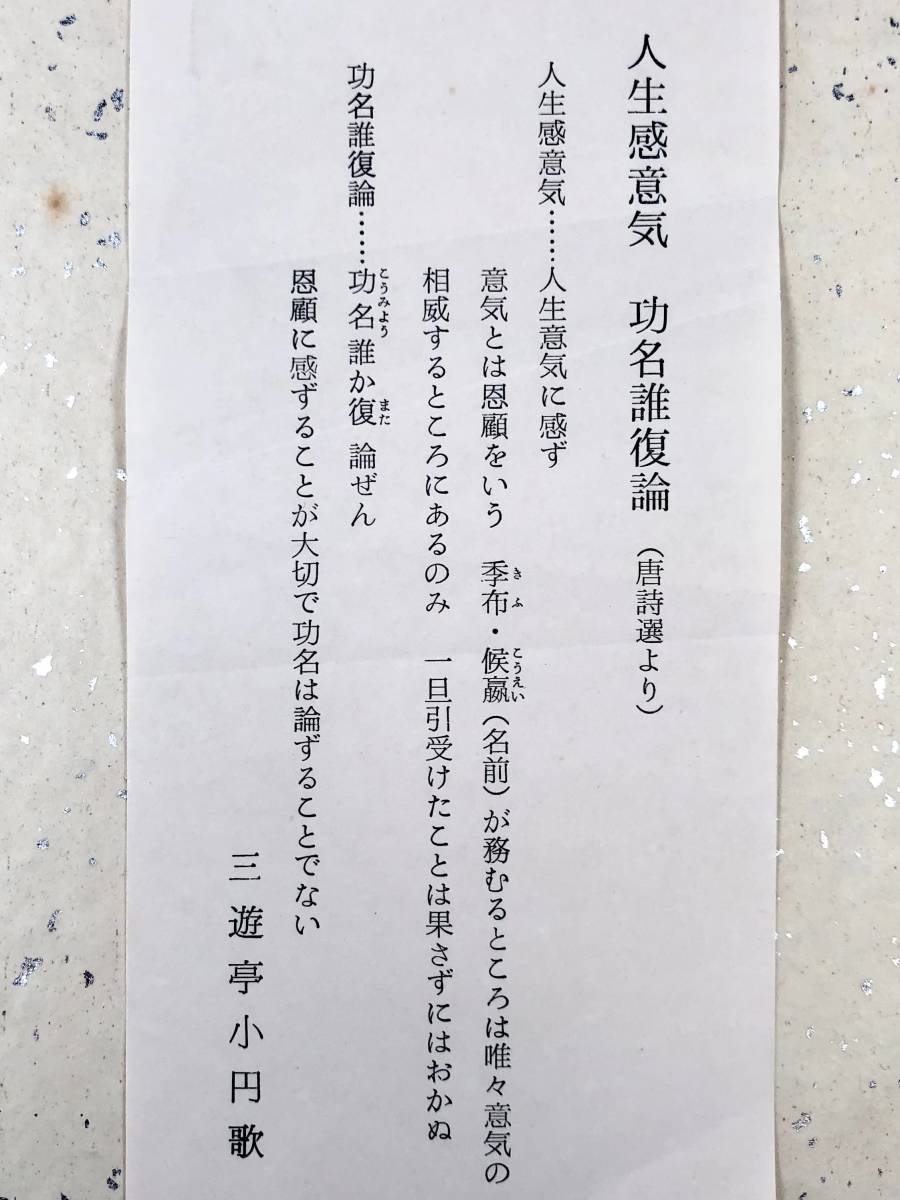 人生感意気　功名誰復論　（唐詩選より）
人生感意気……人生意気に感ず
意気とは恩顧をいう　季布・候嬴（名前）が務むるところは唯々意気の
きふ
こうえい
相威するところにあるのみ　一旦引受けたことは果さずにはおかぬ
功名誰復論……功名誰か復論ぜん
こうみよう
また
恩顧に感ずることが大切で功名は論ずることでない
三遊亭小円歌